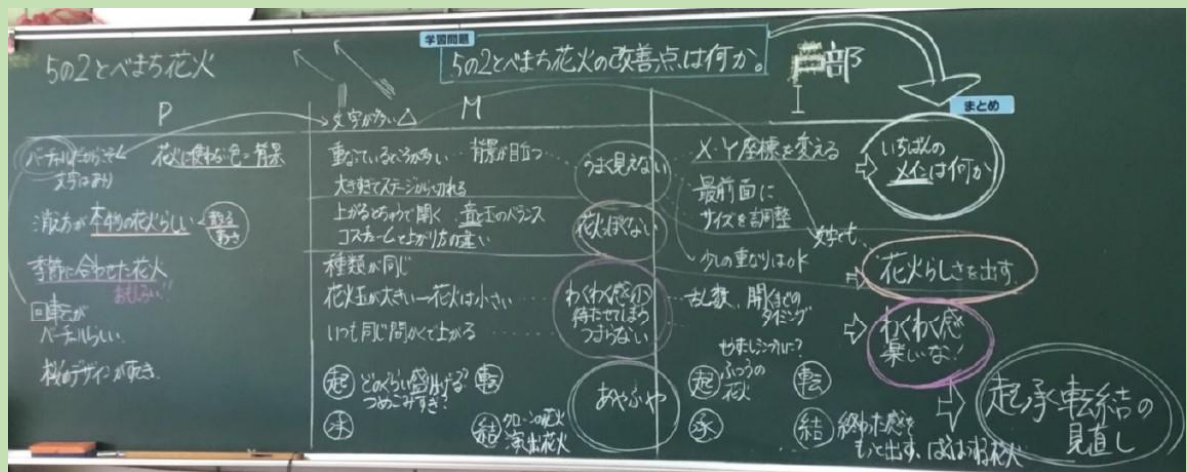 5の2とべまち花火
学習問題
5の2とべまち花火の改善点は何か。
戸部
まとめ
P
文字が多い△
M
バーチルだからこそ
文字はあり
花火に使わない色⇒背景
消え方が本物の花火らしい
季節に合わせた花火
おもしろい!!
回転が
バーチルらしい。
デザインがすてき。
重なっているところが多い
背景が目立つ
大きすぎてステージから切れる
上がるとちゅうで開く
コスチュームと上がり方の違い
種類が同じ
花火玉が大きい→花火は小さい
いつも同じ間かくで上がる
起
どのぐらい盛り上げる?
つめこみすぎ!
転
承
結
クローンの花火
演出花火
うまく見えない
花火っぽくない
わくわく感の
持たせてしまう
つまらない
あやふや
X・Y座標を変える
最前面に
サイズを調整
少しの重なりはOK
乱数、開くまでの
タイミング
起
ふつうの
花火
転
承
結
終わった感を
もっと出す、
いちばんの
メインは何か
花火らしさを出す
わくわく感
楽しいな!
起承転結の
見直し